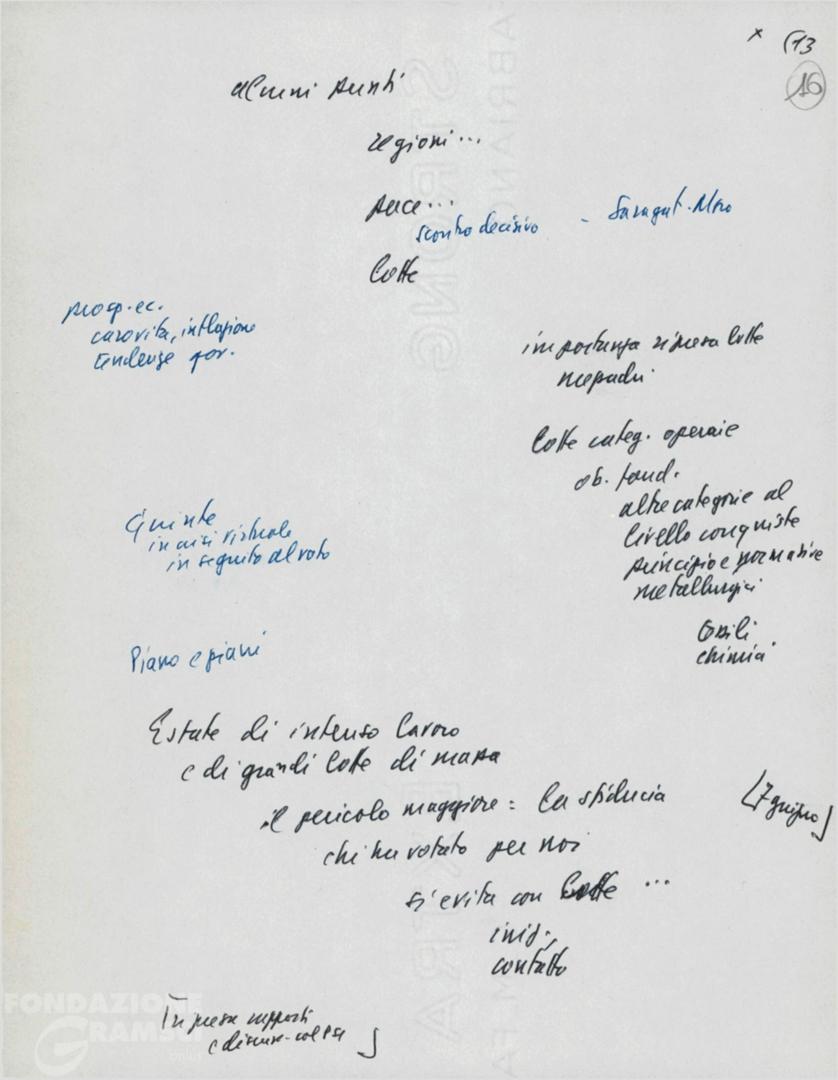 x (13
16
alcuni punti
regioni...
pace...
scontro decisivo - Saragat-Moro
lotte
prosp. ec.
carovita, inflazione
tendenze gov.
importanza ripresa lotte
mezzadri
lotte categ. operaie
ob. fond.
altre categorie al
livello conquiste
principio e normative
metallurgici
Giunte
in crisi virtuale
in seguito al voto
edili
chimici
Piano e piani
Estate di intenso lavoro
e di grandi lotte di massa
il pericolo maggiore: la sfiducia
[7 giugno]
chi ha votato per noi
si evita con lotte ...
iniz.,
contatto
FONDAZIONE
GRAMSCI
onlus
Impresa rapporti
e discuss. col PSI ]
STRONG
EXTRA
FABRIANO